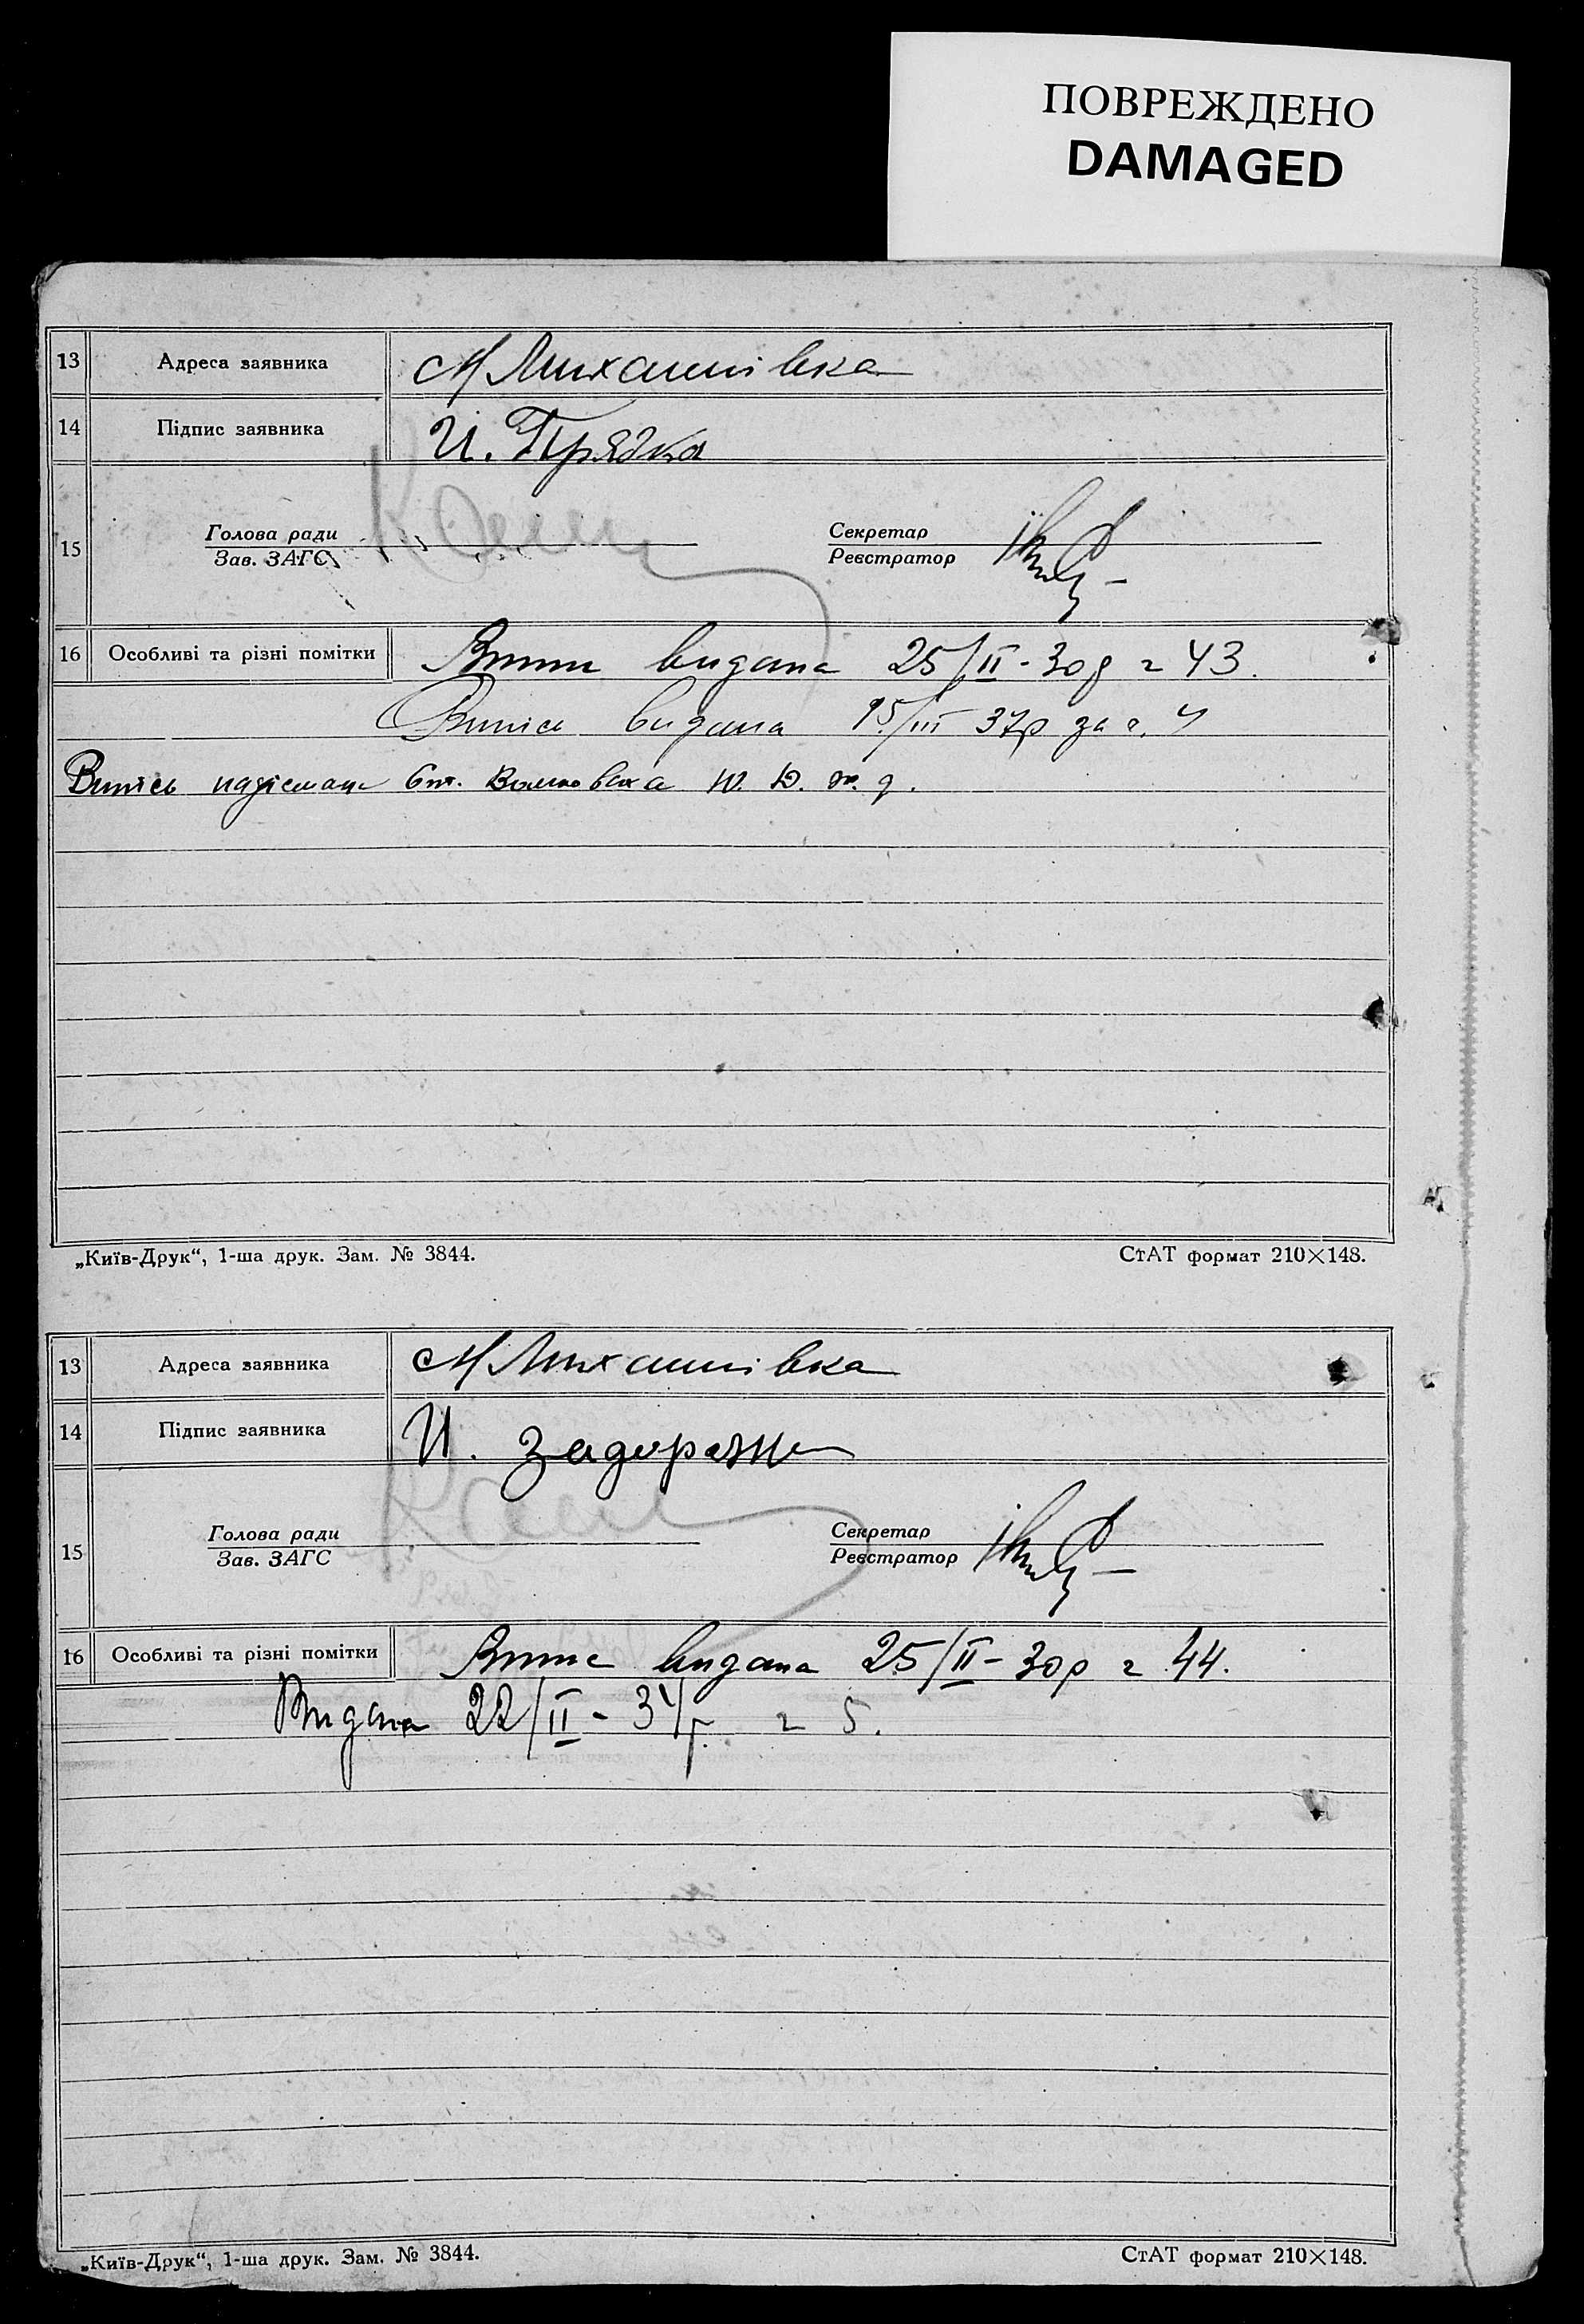 ПОВРЕЖДЕНО
DAMAGED
13 Адреса заявника М Михайлівка
14 Підпис заявника И. Прядка
15 Голова ради Секретар
Зав. ЗАГС Реєстратор
16 Особливі та різні помітки Випис видана 25/II - 30р 2 43.
Випись видана 15/III 37р за 2. 4
Випись надіслана ст. Волноваха ж. д.
„Київ-Друк“, 1-ша друк. Зам. № 3844. СтАТ формат 210×148.
13 Адреса заявника М Михайлівка
14 Підпис заявника И. Задорожн
15 Голова ради Секретар
Зав. ЗАГС Реєстратор
16 Особливі та різні помітки Випис видана 25/II - 30р 2 44.
Видана 22/II - 34 г. 2 5.
„Київ-Друк“, 1-ша друк. Зам. № 3844. СтАТ формат 210×148.